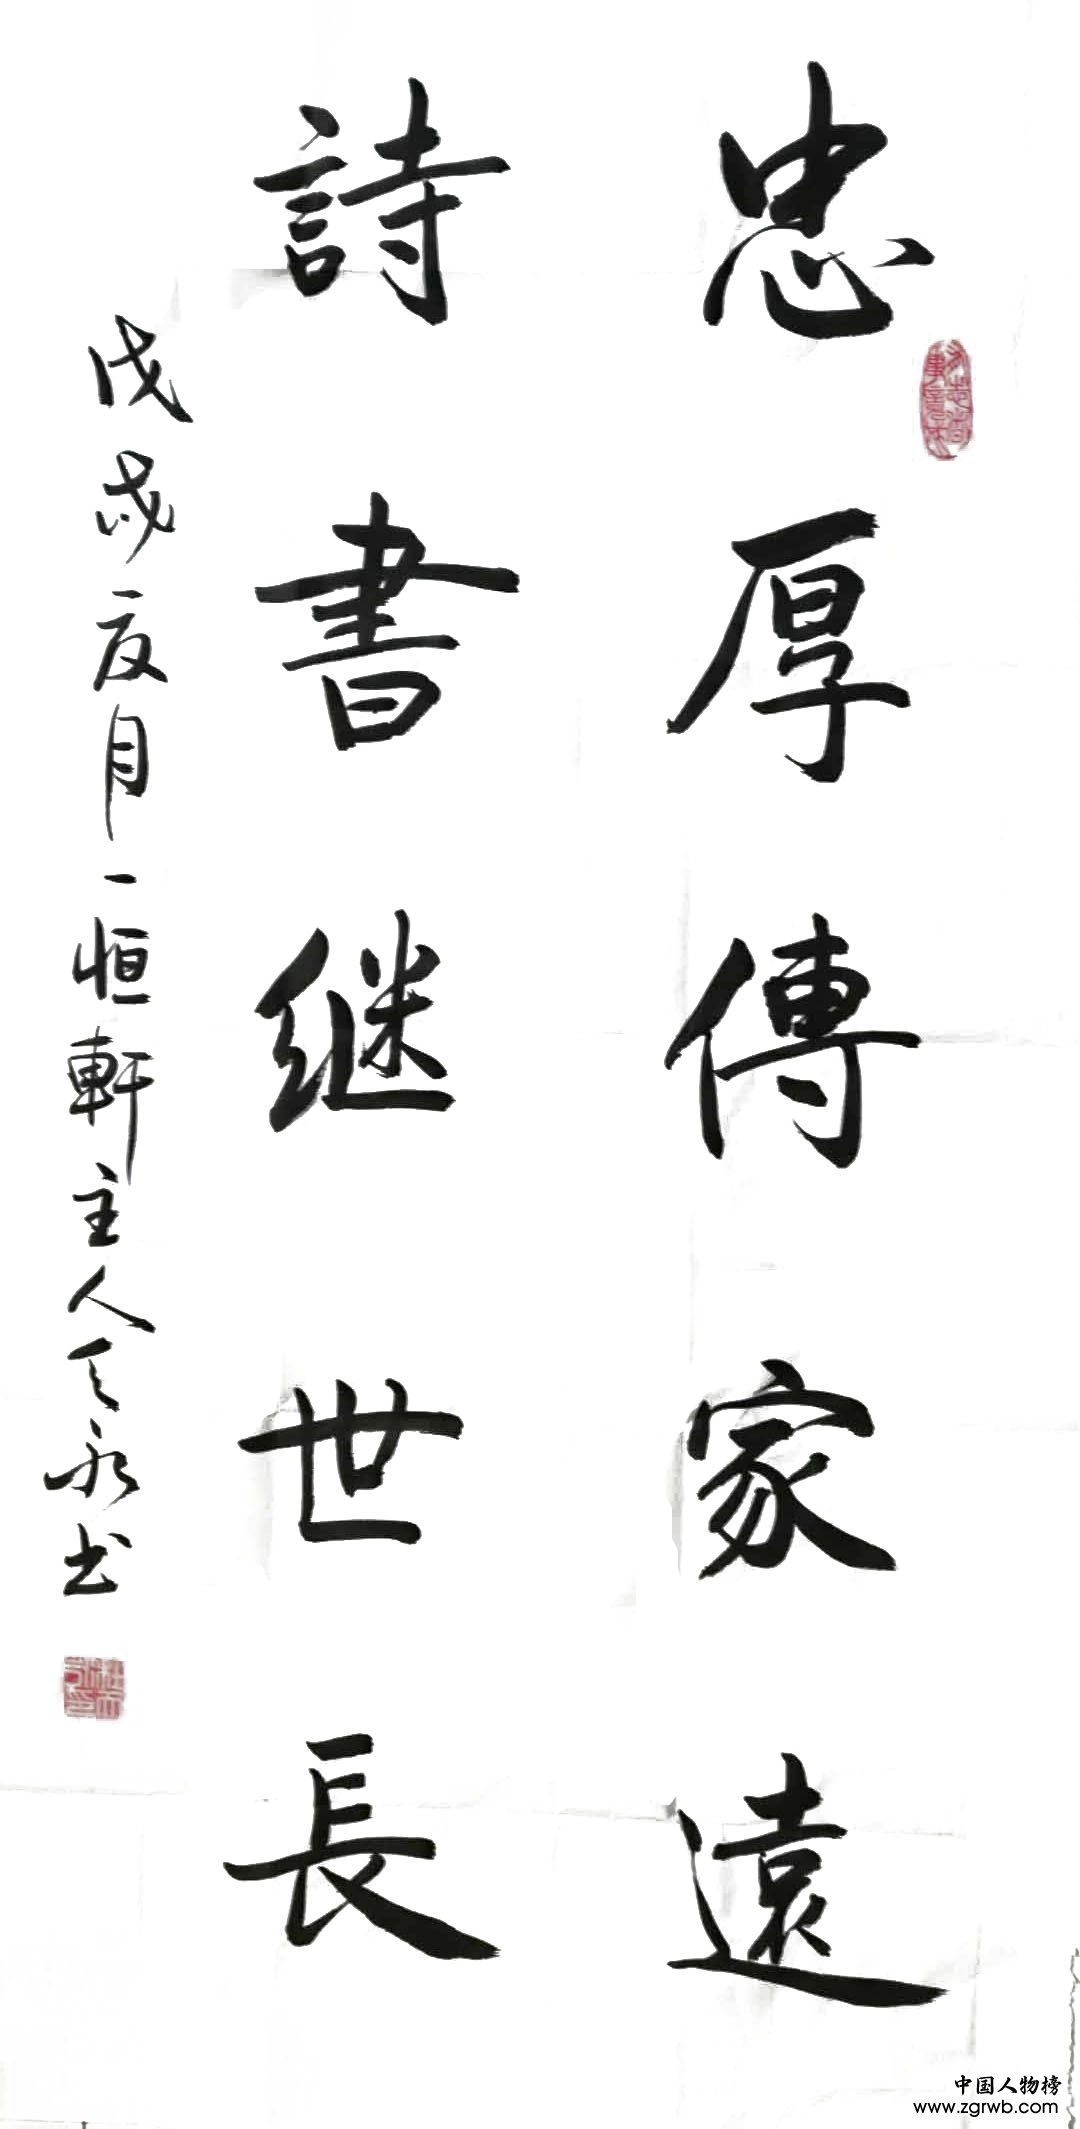 忠厚傳家遠
詩書继世長
戊戌夏月一恒軒主人天永书
中国人物榜
www.zgrwb.com